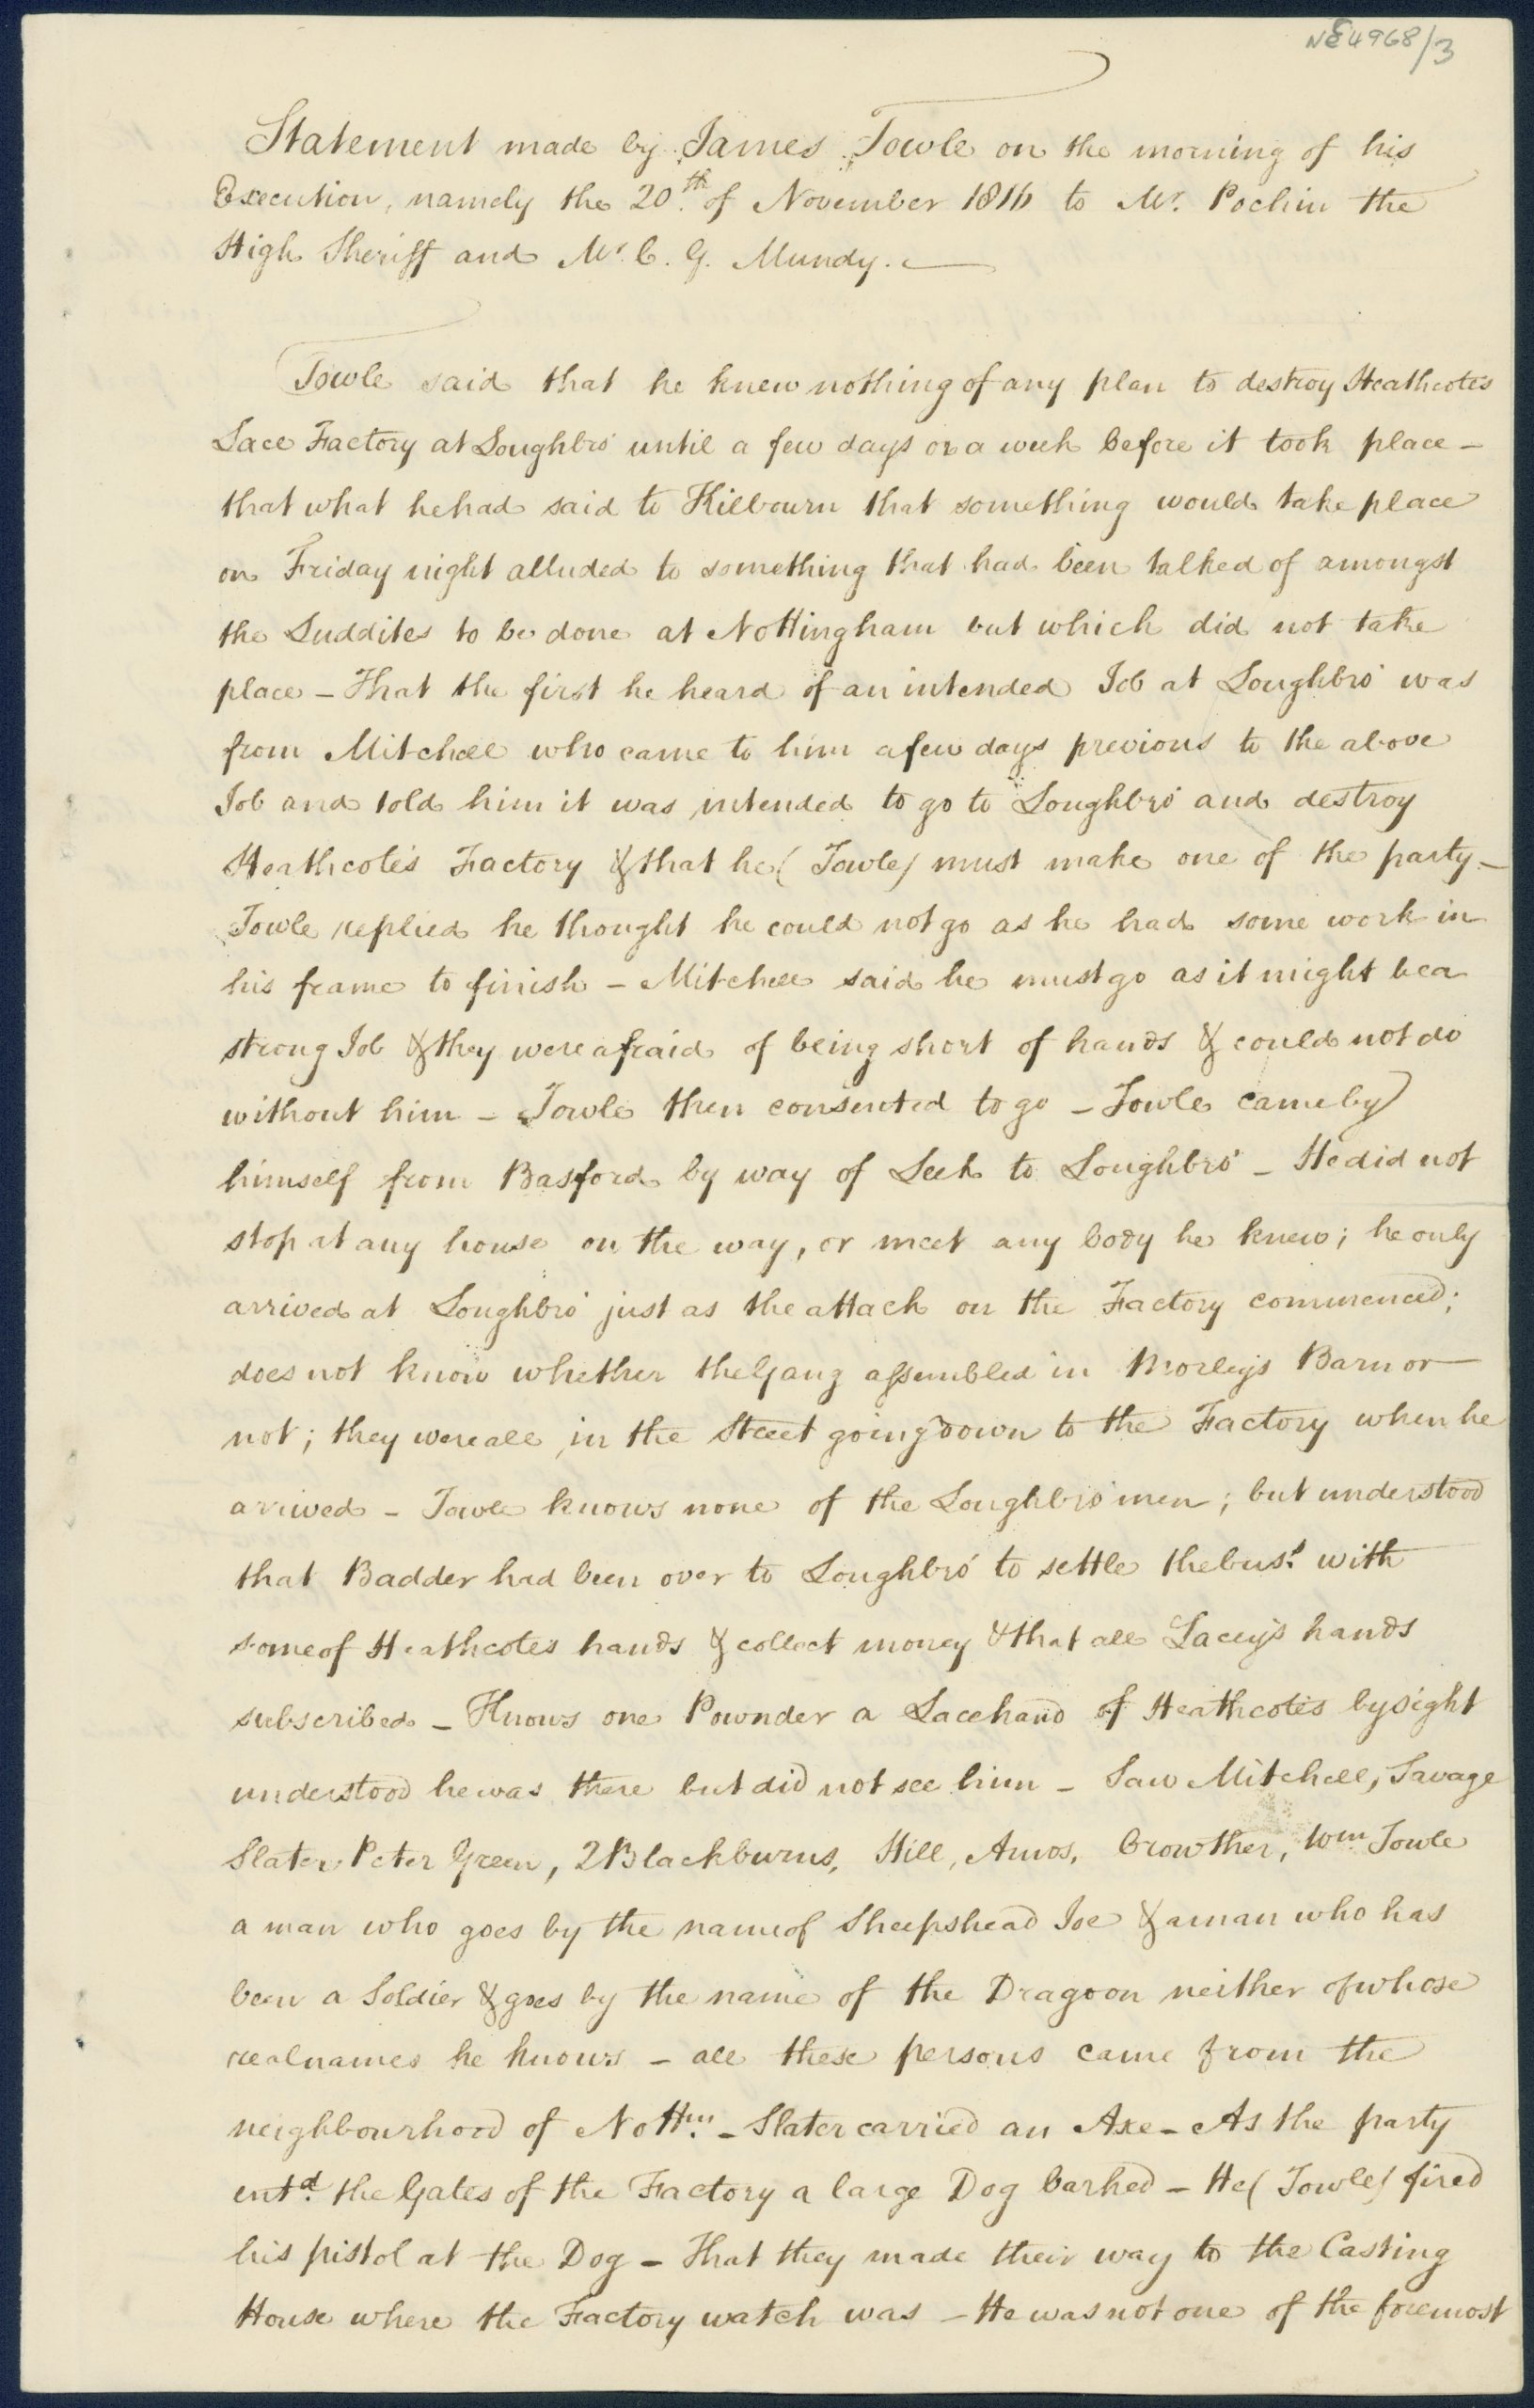 NE 4968/3
Statement made by James Towle on the morning of his
Execution, namely the 20th of November 1816 to Mr. Pochin the
High Sheriff and Mr. C. G. Mundy. —
Towle said that he knew nothing of any plan to destroy Heathcotes
Lace Factory at Loughbro' until a few days or a week before it took place –
that what he had said to Kilbourn that something would take place
on Friday night alluded to something that had been talked of amongst
the Luddites to be done at Nottingham but which did not take
place – That the first he heard of an intended Job at Loughbro' was
from Mitchell who came to him a few days previous to the above
Job and told him it was intended to go to Loughbro' and destroy
Heathcote's Factory & that he (Towle) must make one of the party –
Towle replied he thought he could not go as he had some work in
his frame to finish – Mitchell said he must go as it might be a
strong Job & they were afraid of being short of hands & could not do
without him – Towle then consented to go – Towle came by
himself from Basford by way of Leek to Loughbro' – He did not
stop at any house on the way, or meet any body he knew; he only
arrived at Loughbro' just as the attack on the Factory commenced;
does not know whether the Gang assembled in Morley's Barn or
not; they were all in the Street going down to the Factory when he
arrived – Towle knows none of the Loughbro' men; but understood
that Badder had been over to Loughbro' to settle the buss. with
some of Heathcotes hands & collect money & that all Lacey's hands
subscribed – Knows one Pownder a Lacehand of Heathcotes by sight
understood he was there but did not see him – Saw Mitchell, Savage
Slater, Peter Green, 2 Blackburns, Hill, Amos, Crowther, Wm Towle
a man who goes by the name of Sheepshead Joe & a man who has
been a Soldier & goes by the name of the Dragoon neither of whose
real names he knows – all these persons came from the
neighbourhood of Nottm. – Slater carried an Axe – As the party
entd. the Gates of the Factory a large Dog barked – He (Towle) fired
his pistol at the Dog – That they made their way to the Casting
House where the Factory watch was – He was not one of the foremost